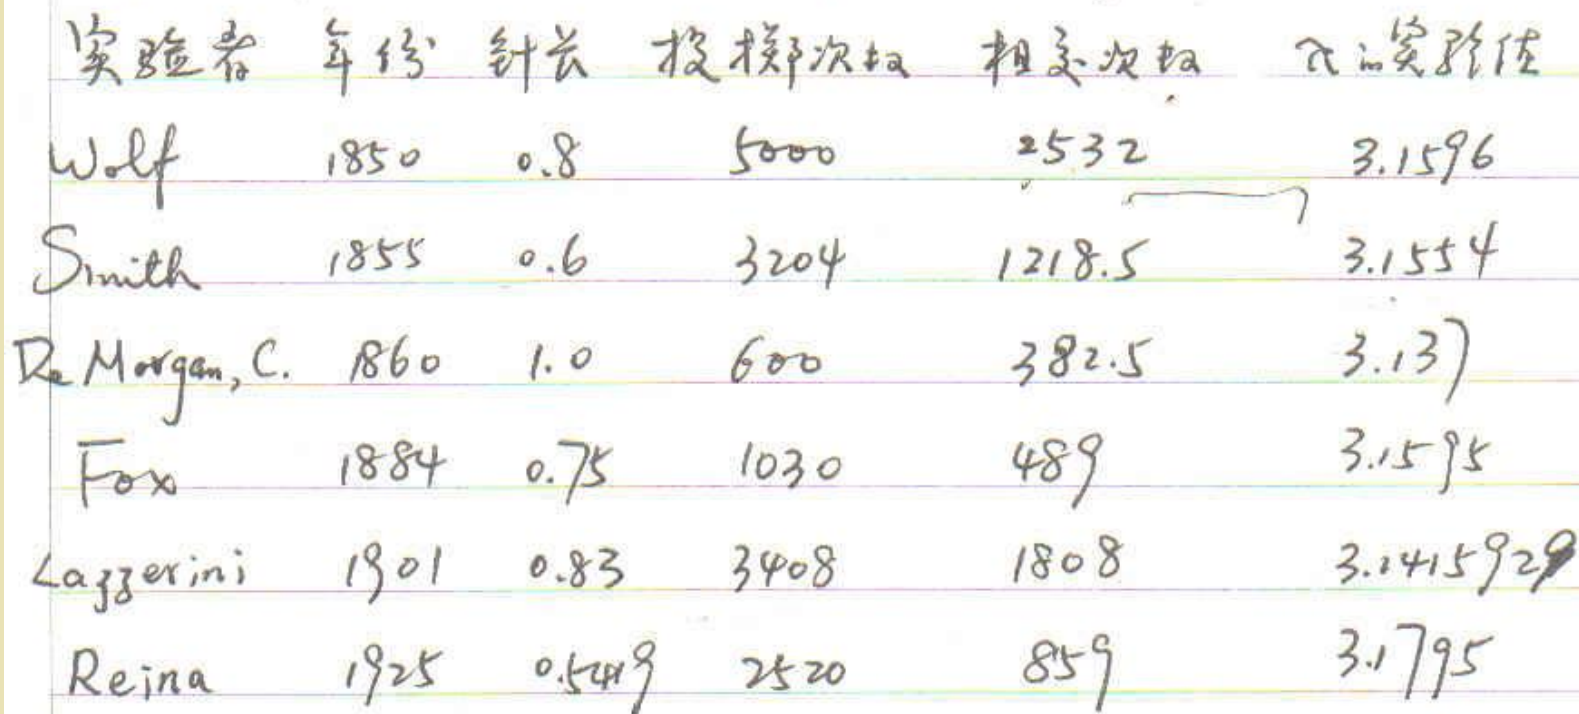 实验者 年份 针长 投掷次数 相交次数 π的实验值
Wolf 1850 0.8 5000 2532 3.1596
Smith 1855 0.6 3204 1218.5 3.1554
De Morgan, C. 1860 1.0 600 382.5 3.137
Fox 1884 0.75 1030 489 3.1595
Lazzerini 1901 0.83 3408 1808 3.1415929
Reina 1925 0.5419 2520 859 3.1795